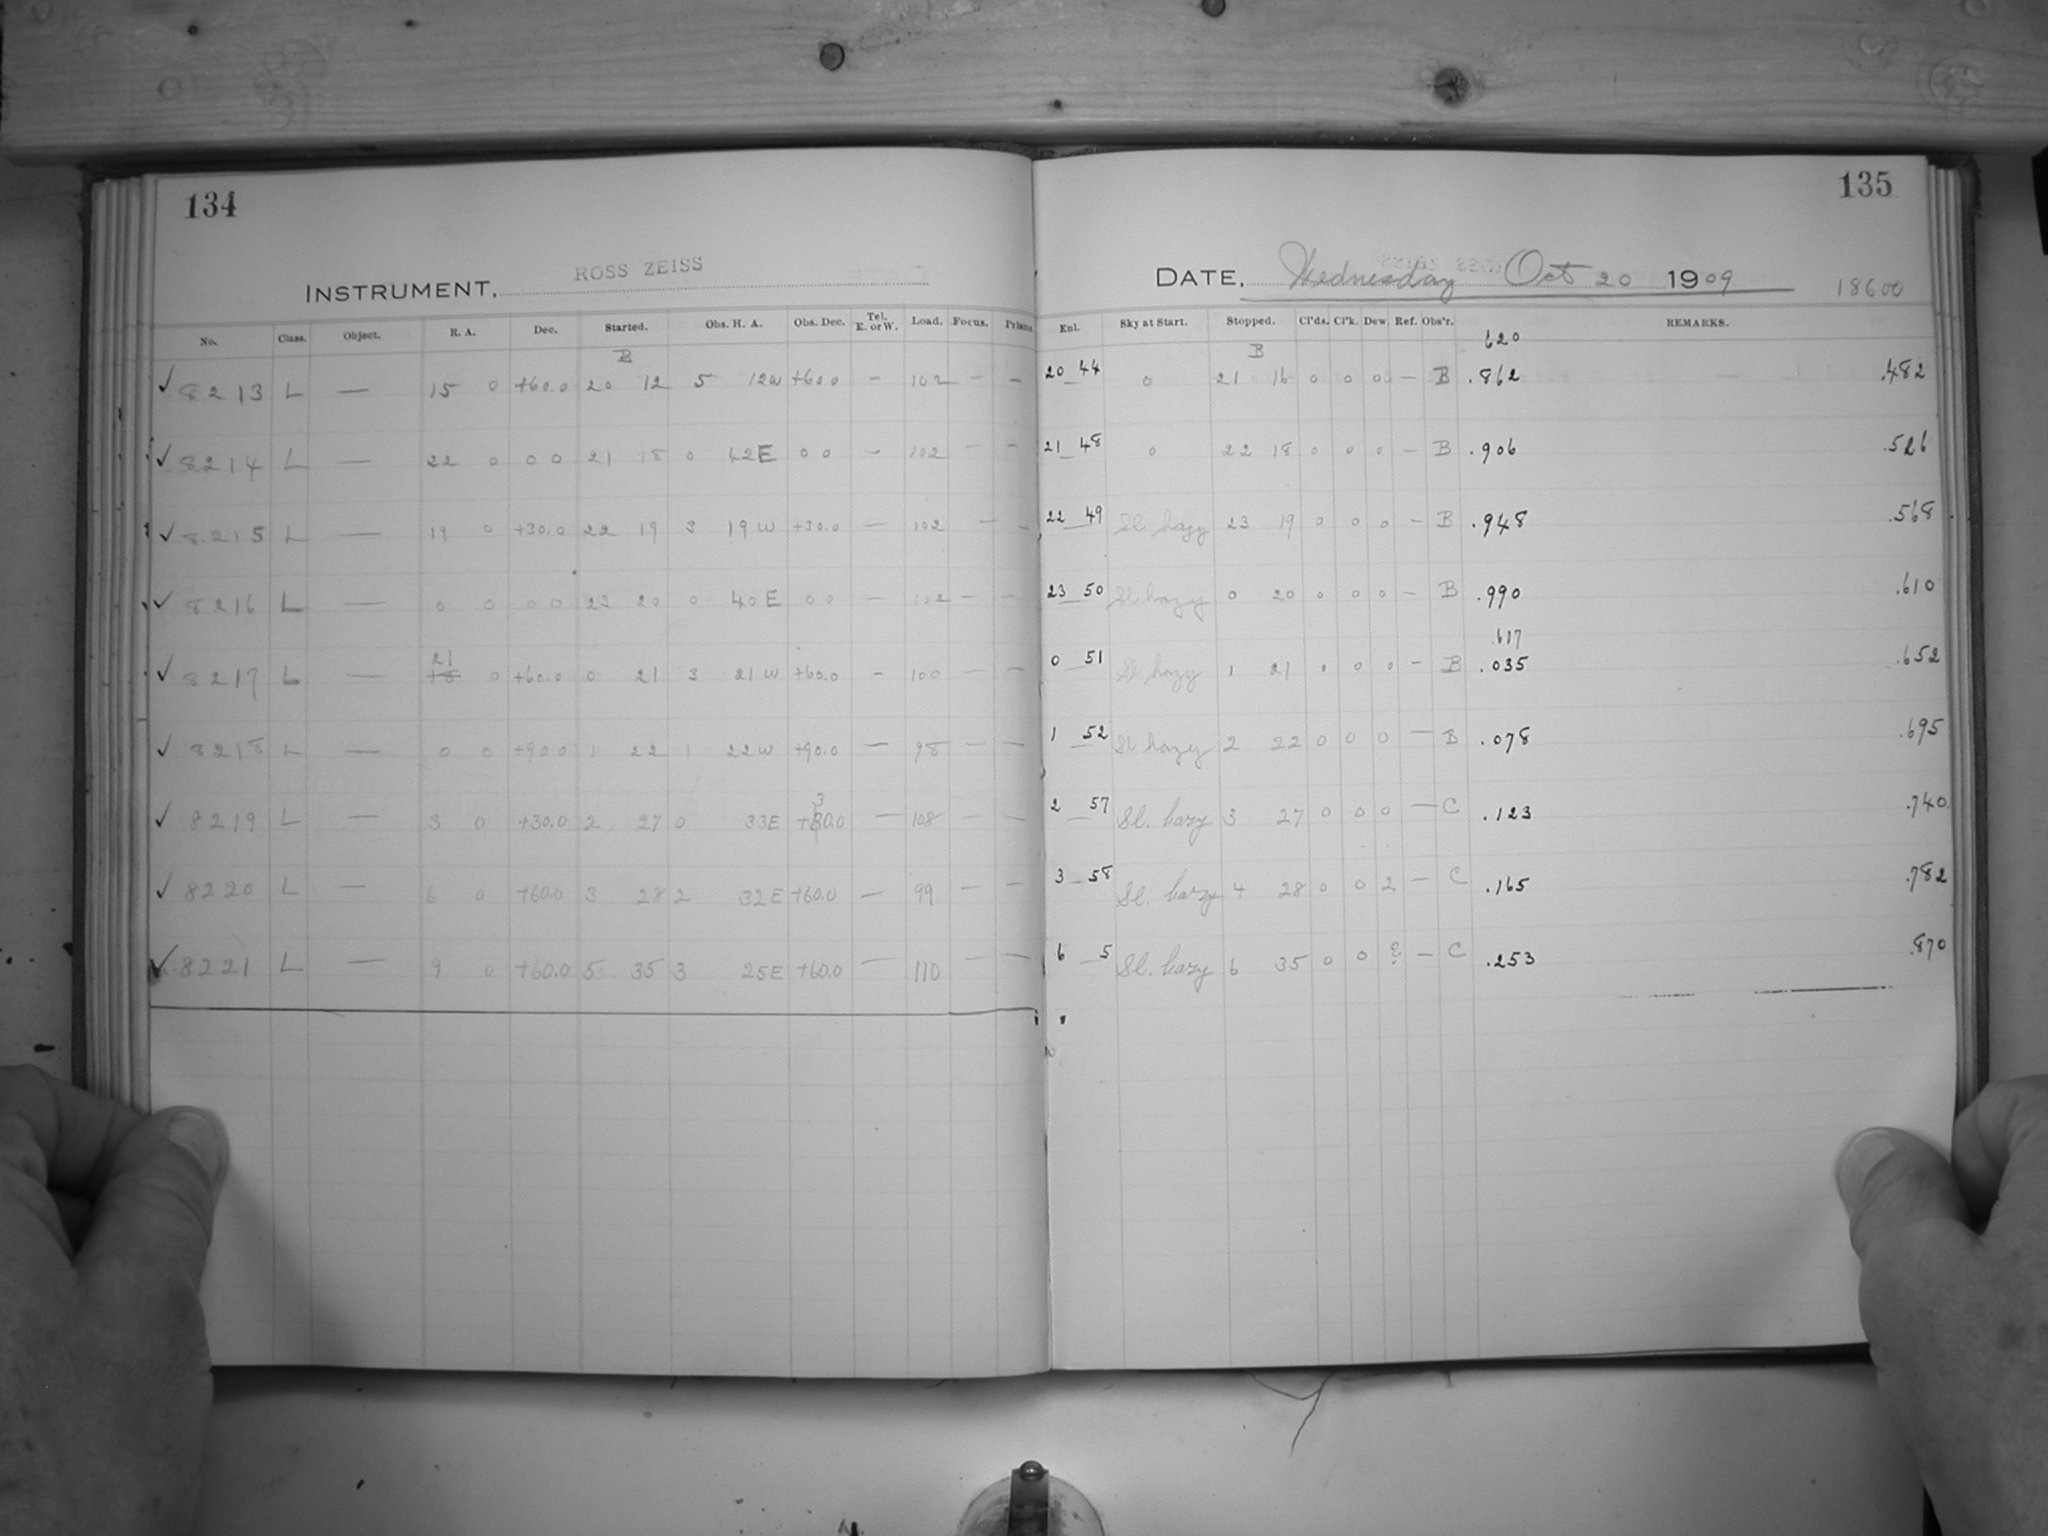 134
INSTRUMENT, ROSS ZEISS
No. Class. Object. R. A. Dec. Started. Obs. H. A. Obs. Dec. Tel. E. or W. Load. Focus. Prisms
B
✓ 8213 L — 15 0 +60.0 20 12 5 12W +60.0 — 102 — —
✓ 8214 L — 22 0 0 0 21 18 0 42E 0 0 — 102 — —
✓ 8215 L — 19 0 +30.0 22 19 3 19W +30.0 — 102 — —
✓ 8216 L — 0 0 0 0 23 20 0 40E 0 0 — 102 — —
21
✓ 8217 L — 18 0 +60.0 0 21 3 21W +60.0 — 100 — —
✓ 8218 L — 0 0 +90.0 1 22 1 22W +90.0 — 98 — —
3
✓ 8219 L — 3 0 +30.0 2 27 0 33E +30.0 — 108 — —
✓ 8220 L — 6 0 +60.0 3 28 2 32E +60.0 — 99 — —
✓ 8221 L — 9 0 +60.0 5 35 3 25E +60.0 — 110 — —
135
DATE, Wednesday Oct 20 1909 18600
Exl. Sky at Start. Stopped. Cl'ds. Cl'k. Dew. Ref. Obs'r. REMARKS.
B 620
20 44 0 21 16 0 0 0 — B .862 .482
21 48 0 22 18 0 0 0 — B .906 .526
22 49 Sl hazy 23 19 0 0 0 — B .948 .568
23 50 Sl hazy 0 20 0 0 0 — B .990 .610
.617
0 51 Sl hazy 1 21 0 0 0 — B .035 .652
1 52 Sl hazy 2 22 0 0 0 — B .078 .695
2 57 Sl. hazy 3 27 0 0 0 — C .123 .740
3 58 Sl. hazy 4 28 0 0 2 — C .165 .782
6 5 Sl. hazy 6 35 0 0 ? — C .253 .870